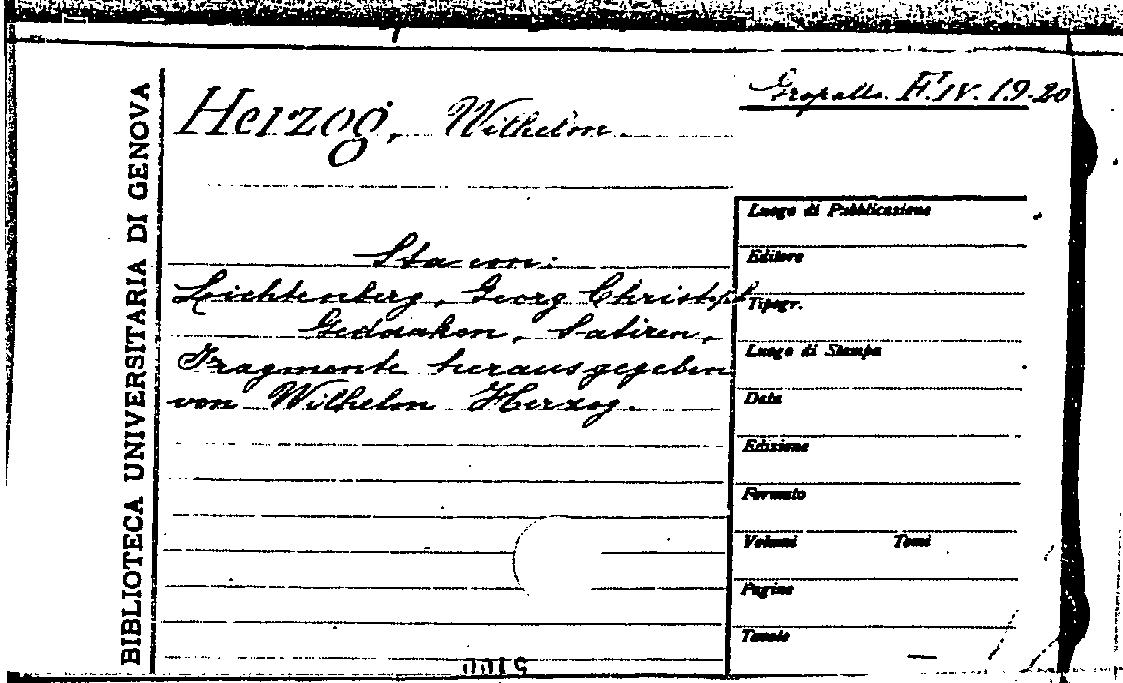 BIBLIOTECA UNIVERSITARIA DI GENOVA
Herzog, Wilhelm.
Gropallo F.IV.19.20
Sta con:
Lichtenberg, Georg Christoph
Gedanken, Satiren,
Fragmente herausgegeben
von Wilhelm Herzog.
Luogo di Pubblicazione
Editore
Tipogr.
Luogo di Stampa
Data
Edizione
Formato
Volumi Tomi
Pagine
Tavole